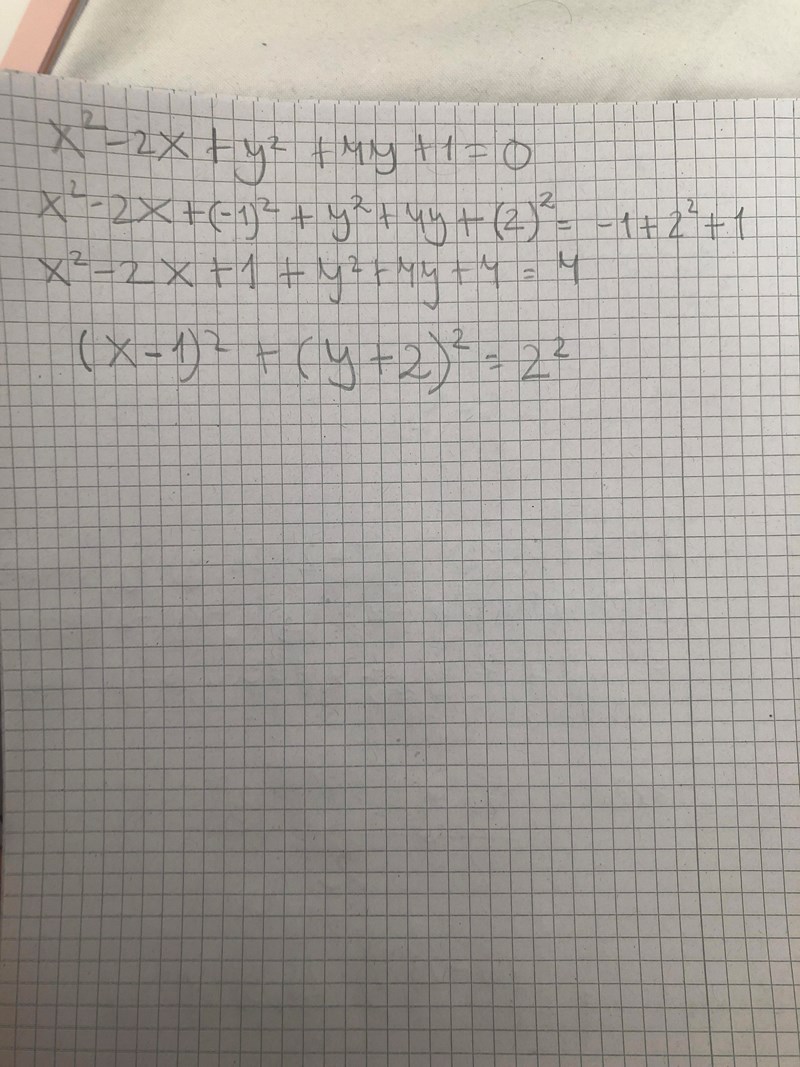 x² - 2x + y² + 4y + 1 = 0
x² - 2x + (-1)² + y² + 4y + (2)² = -1 + 2² + 1
x² - 2x + 1 + y² + 4y + 4 = 4
(x - 1)² + (y + 2)² = 2²